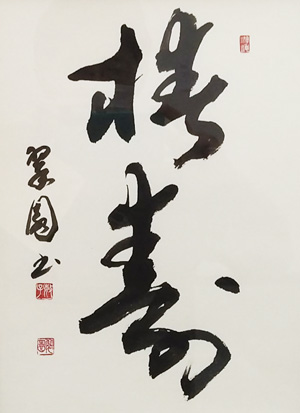 椿壽
翠園書